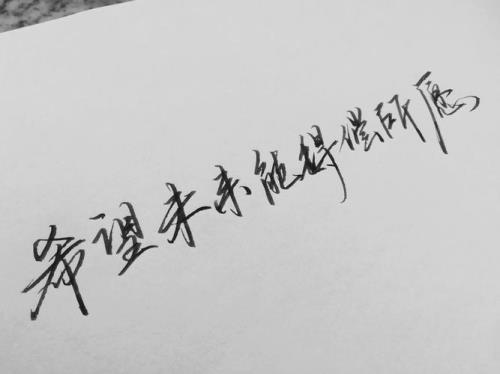 希望未来能得偿所愿